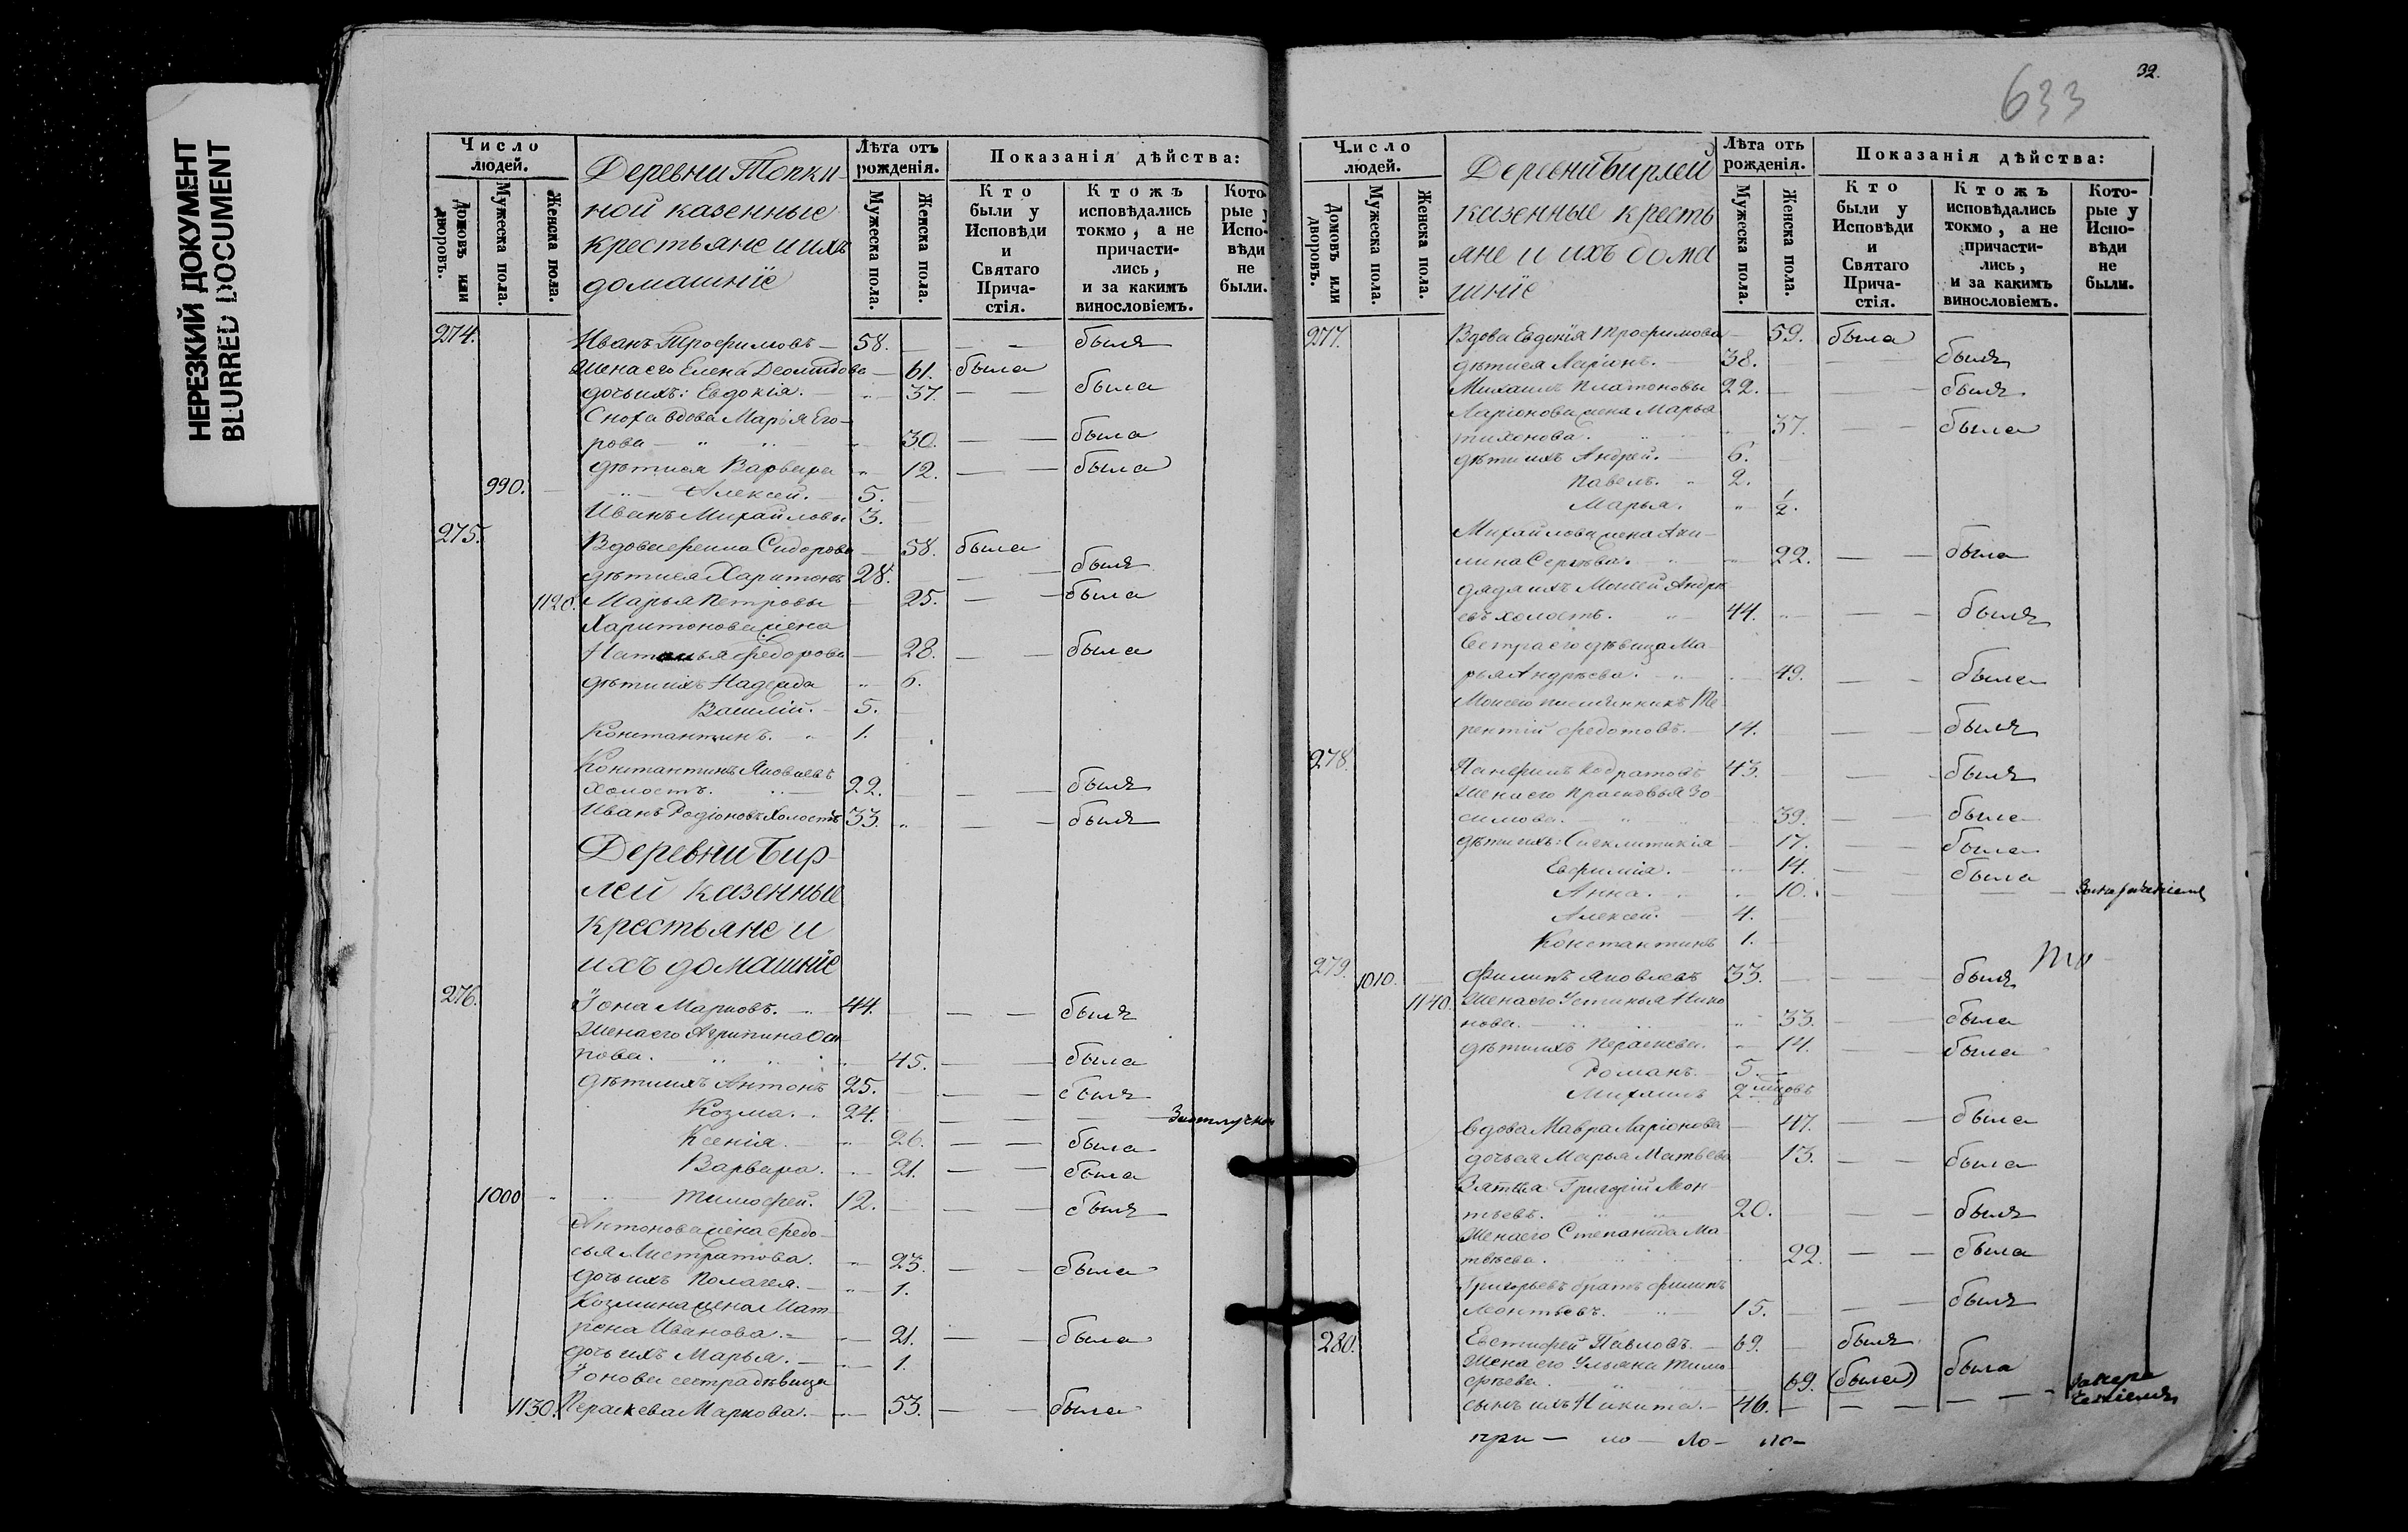 НЕРЕЗКИЙ ДОКУМЕНТ
BLURRED DOCUMENT
Число людей.
Домовъ или дворовъ.
Мужеска пола.
Женска пола.
Деревни Топки-
ной казенные
крестьяне и ихъ
домашніе
Лѣта отъ рожденія.
Мужеска пола.
Женска пола.
Показанія дѣйства:
Кто были у Исповѣди и Святаго Прича-стія.
Ктожъ исповѣдались токмо, а не причасти-лись, и за какимъ винословіемъ.
Кото-рые у Испо-вѣди не были.
274. Иванъ Трофимовъ — 58. — — былъ
Жена его Елена — 61. была
дочь ихъ: Евдокія. — 37. — — была
Сноха вдова Марья Его-
рова — 30. — — была
дѣти ея Варвара — 12. — — была
990. Алексей. — 5. —
Иванъ Михайловы 3. —
275. Вдова Сидорова — 58. была
дѣти ея Харитонъ 28. — — былъ
1120. Марья Петровы — 25. — — была
Харитонова жена
Наталья Федорова — 28. — — была
дѣти ихъ Надежда — 6.
Василій. — 5. —
Константинъ. — 1. —
Константинъ Яковлевъ
холостъ. — 22. — — былъ
Иванъ Родіоновъ холостъ 33. — — былъ
Деревни Бир-
лей казенные
крестьяне и
ихъ домашніе
276. Іона Марковъ. — 44. — — былъ
Жена его Агрипина Оси
пова. — 45. — — была
дѣти ихъ Антонъ 25. — — былъ
Козма. — 24. — — — За отлучкою
Ксенія. — 26. — — была
Варвара. — 21. — — была
1000 — Тимофей. 12. — — былъ
Антонова жена Федо-
сья Листратова. — 23. — — была
дочь ихъ Полагея. — 1.
Козмина жена Мат-
рена Иванова. — 21. — — была
дочь ихъ Марья. — 1.
Іонова сестра дѣвица
1130. Пераскева Маркова. — 53. — — была
32.
633
Число людей.
Домовъ или дворовъ.
Мужеска пола.
Женска пола.
Деревни Бирлей
казенные кресть
яне и ихъ дома
шніе
Лѣта отъ рожденія.
Мужеска пола.
Женска пола.
Показанія дѣйства:
Кто были у Исповѣди и Святаго Прича-стія.
Ктожъ исповѣдались токмо, а не причасти-лись, и за какимъ винословіемъ.
Кото-рые у Испо-вѣди не были.
277. Вдова Евдокія Трофимова — 59. была
дѣти ея Ларіонъ. — 38. — — былъ
Михаилъ Платоновы 22. — — былъ
Ларіонова жена Марья
Тихонова. — 37. — — была
дѣти ихъ Андрей. — 6. —
Павелъ. 2. —
Марья. — 1/2.
Михайлова жена Аки-
лина Сергѣева. — 22. — — была
дядя ихъ Моисей Андре
евъ холостъ. — 44. — — былъ
Сестра его дѣвица Ма-
рья Андреева. — 49. — — была
Моисея племянникъ Те
рентій Федотовъ. — 14. — — былъ
278. Панфилъ Кодратовъ 43. — — былъ
Жена его Прасковья Зо
симова. — 39. — — была
дѣти ихъ: Сиклитикія — 17. — — была
Евфимія. — 14. — — была
Анна. — 10. — — — За нераченіемъ
Алексей. — 4. —
Константинъ 1. —
279. 1010. Филипъ Яковлевъ 33. — — былъ
1140. Жена его Устинья Нико
нова. — 33. — — была
дѣти ихъ Пераскева. — 14. — — была
Романъ. — 5. —
Михаилъ 2 мѣсяцовъ
вдова Мавра Ларіонова — 47. — — была
дочь ея Марья Матвѣева — 13. — — была
Зять ея Григорій Мок-
ѣевъ. — 20. — — былъ
Жена его Степанида Ма
твѣева. — 22. — — была
Григорьевъ братъ Филипъ
Мокѣевъ. — 15. — — былъ
280. Евстифей Павловъ. — 69. — былъ
Жена его Ульяна Тимо
феева. — 69. (была) была
сынъ ихъ Никита. — 46. — — — За нераченіемъ